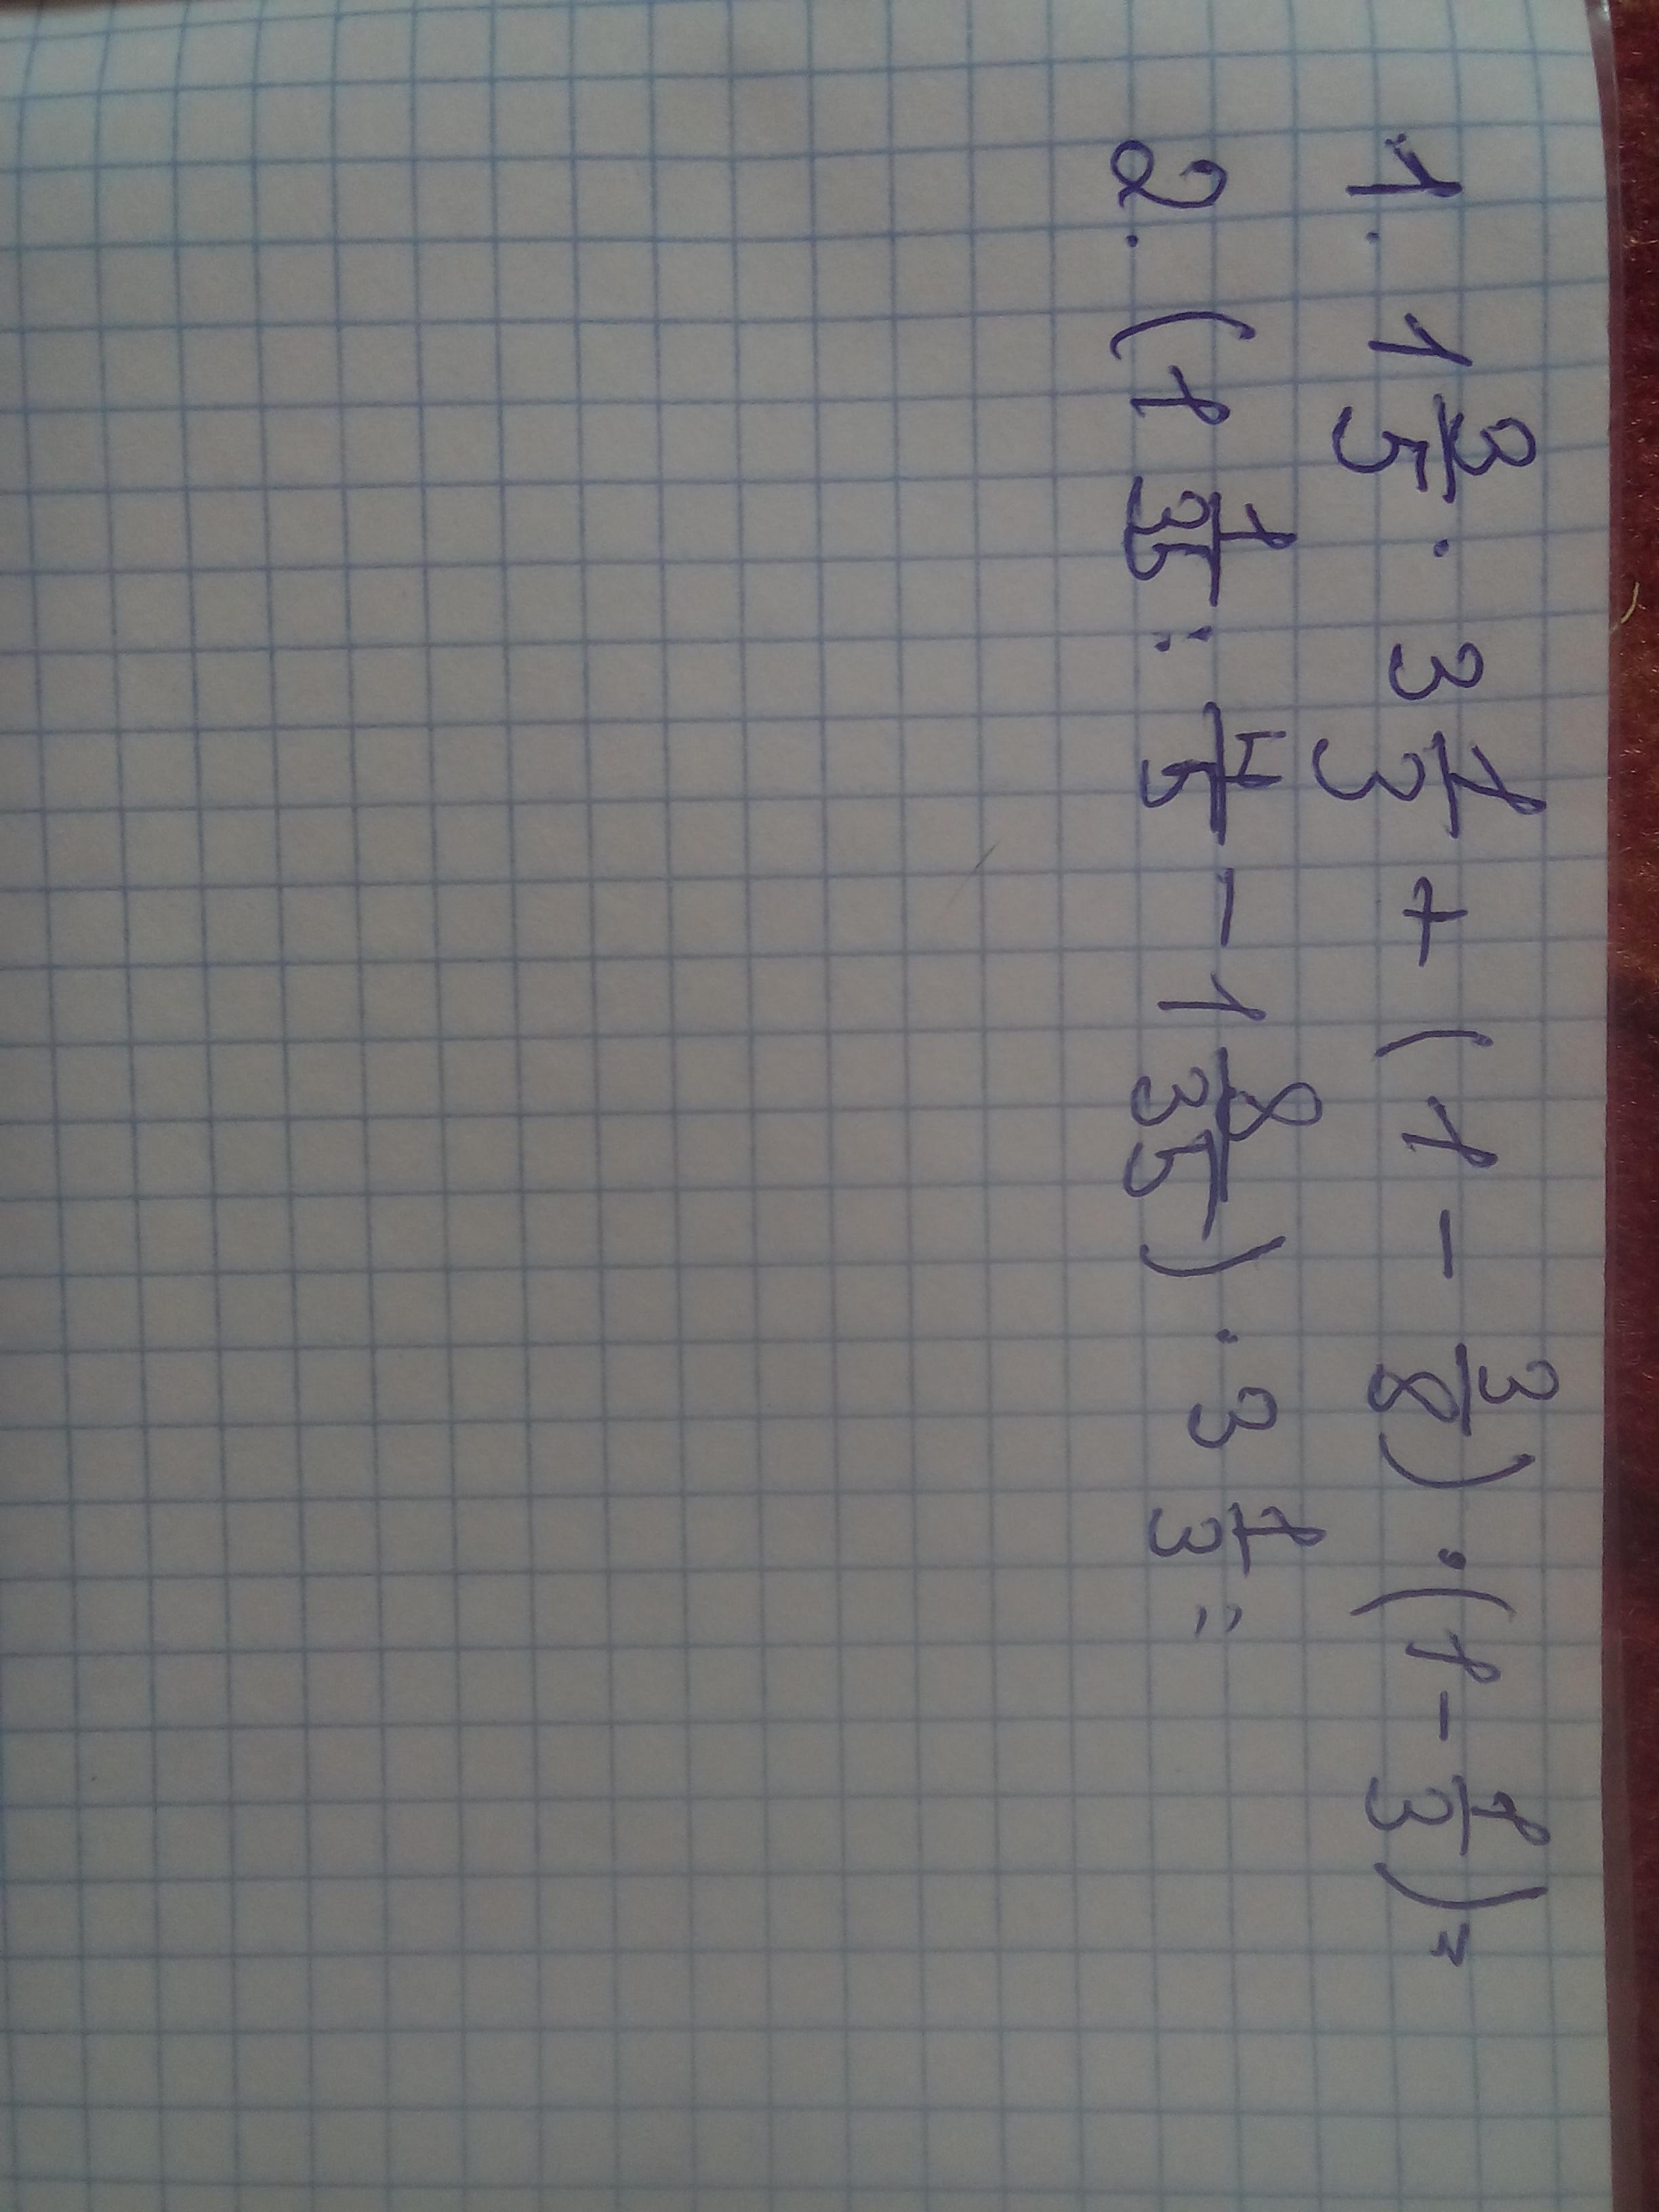 1. 1 3/5 · 3 1/3 + (1 - 3/8) · (1 - 1/3) =
2. (1 1/35 : 4/5 - 1 8/35) · 3 1/3 =